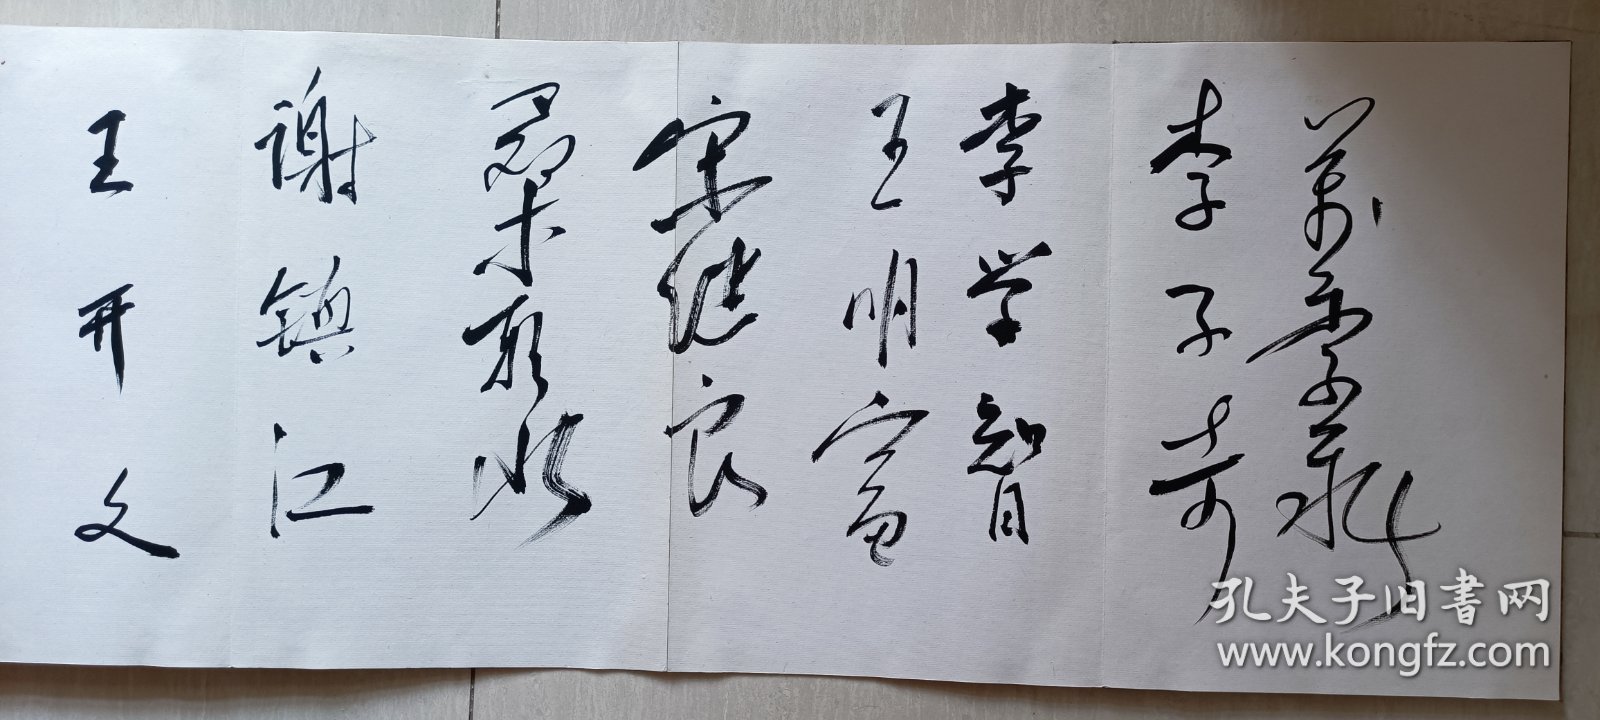 李子奇
李学智
王明富
宋继良
谢镇江
王开文
孔夫子旧书网
www.kongfz.com